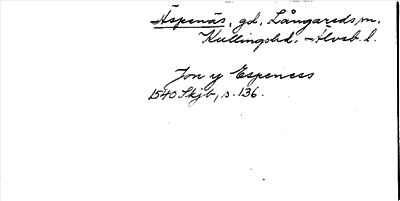 Äspenäs, gd, Långareds sn.
Kullingshd. Älvsb. l.
Jon y Espeness
1540 Skjb, s. 136.